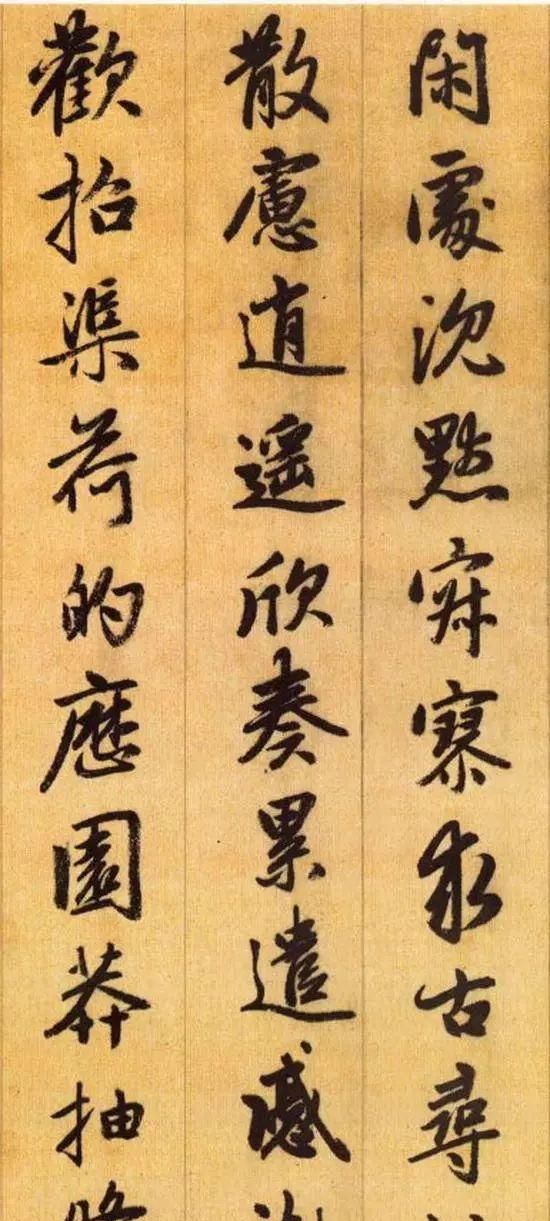 閑處沉默寂寥求古尋
散慮逍遙欣奏累遣慼
歡招渠荷的歷園莽抽